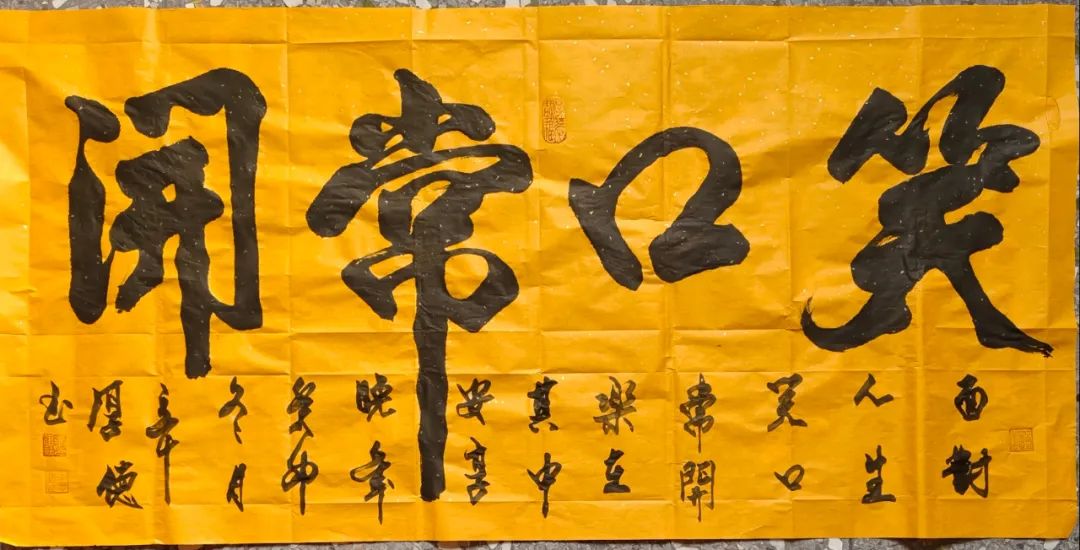 笑口常開
面對
人生
笑口
常開
樂在
其中
安享
晚年
冬月
厚德